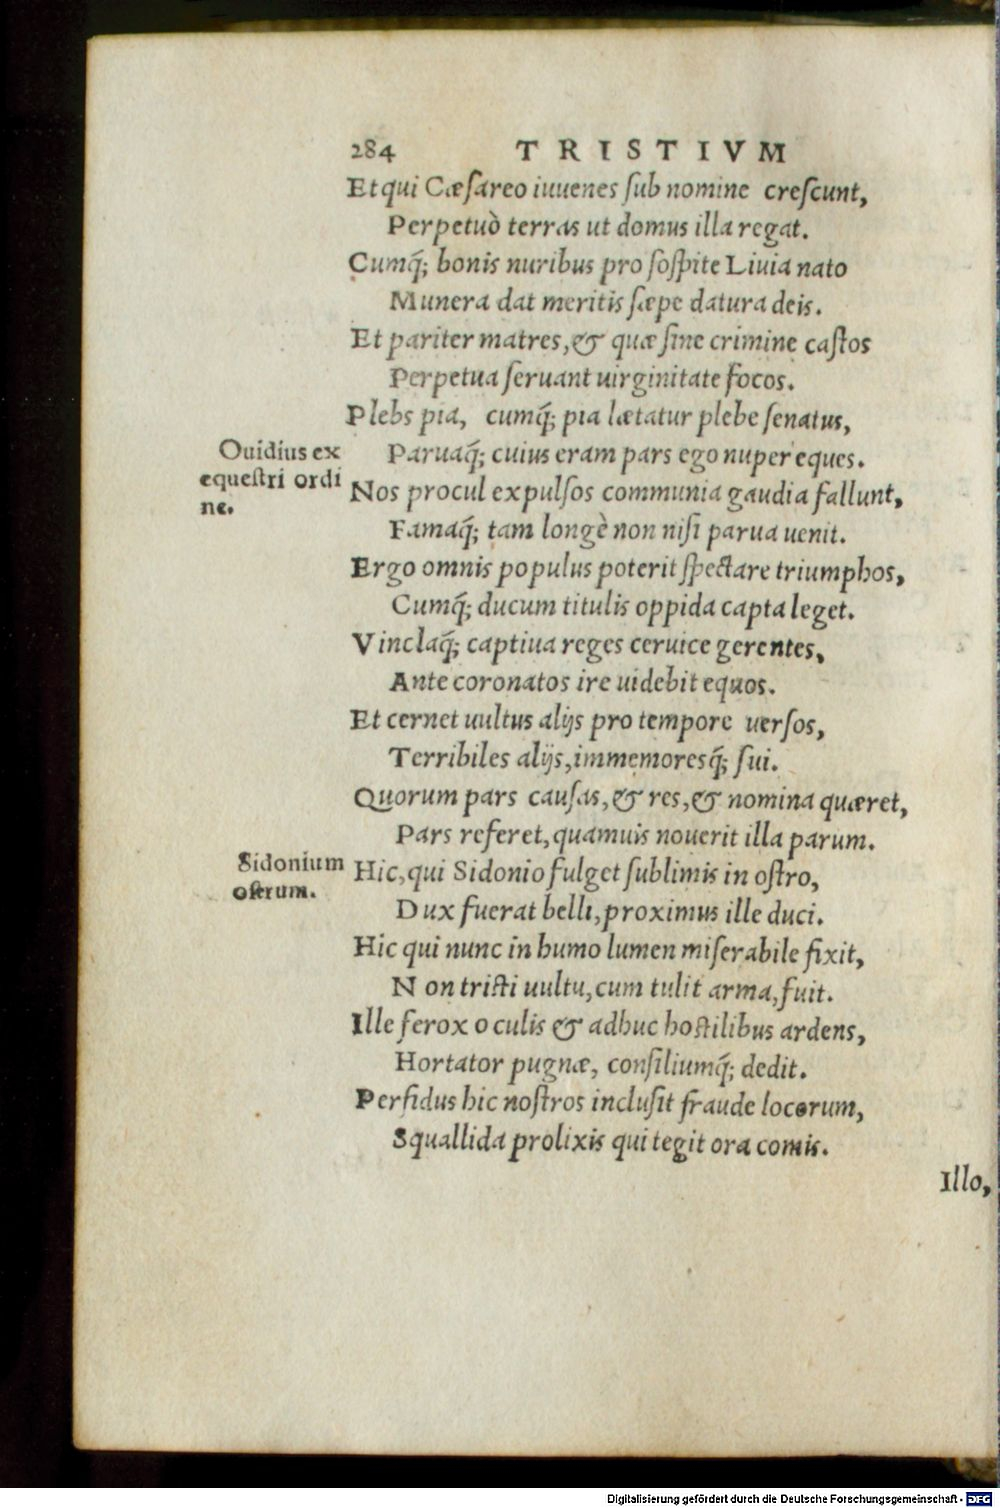 284 TRISTIVM
Et qui Cæsareo iuuenes sub nomine crescunt,
Perpetuò terras ut domus illa regat.
Cumq́; bonis nuribus pro sospite Liuia nato
Munera dat meritis sæpe datura deis.
Et pariter matres, & quæ sine crimine castos
Perpetua seruant uirginitate focos.
Plebs pia, cumq́; pia lætatur plebe senatus,
Ouidius ex
equestri ordi
ne.
Paruaq́; cuius eram pars ego nuper eques.
Nos procul expulsos communia gaudia fallunt,
Famaq́; tam longè non nisi parua uenit.
Ergo omnis populus poterit spectare triumphos,
Cumq́; ducum titulis oppida capta leget.
Vinclaq́; captiua reges ceruice gerentes,
Ante coronatos ire uidebit equos.
Et cernet uultus alijs pro tempore uersos,
Terribiles alijs, immemoresq́; sui.
Quorum pars causas, & res, & nomina quæret,
Pars referet, quamuis nouerit illa parum.
Sidonium
ostrum.
Hic, qui Sidonio fulget sublimis in ostro,
Dux fuerat belli, proximus ille duci.
Hic qui nunc in humo lumen miserabile fixit,
Non tristi uultu, cum tulit arma, fuit.
Ille ferox oculis & adhuc hostilibus ardens,
Hortator pugnæ, consiliumq́; dedit.
Perfidus hic nostros inclusit fraude locorum,
Squallida prolixis qui tegit ora comis.
Illo,
Digitalisierung gefördert durch die Deutsche Forschungsgemeinschaft - DFG